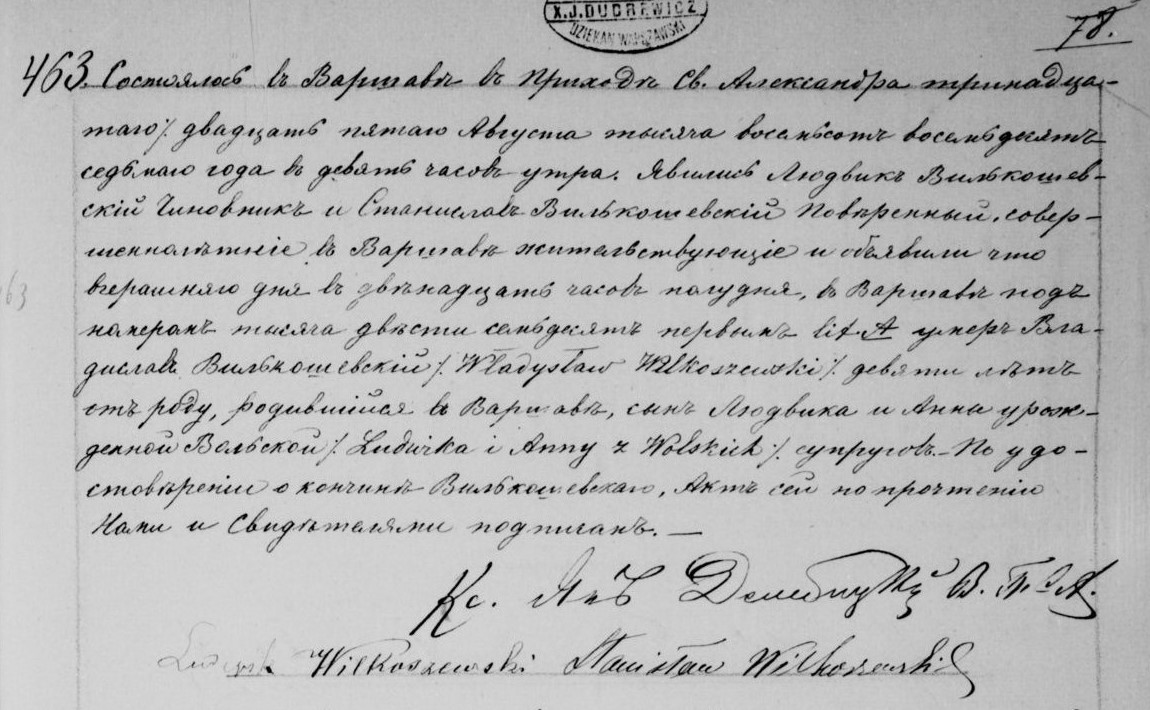 X.J.DUDREWICZ
DZIEKAN WARSZAWSKI
78.
463. Состоялось въ Варшавѣ въ Приходѣ Св. Александра тринадца-
таго/: двадцать пятаго Августа тысяча восемьсотъ восемьдесятъ
седьмаго года въ девять часовъ утра. Явились Людвикъ Вилькошев-
скій Чиновникъ и Станиславъ Вилькошевскій Повѣренный, совер-
шеннолѣтніе въ Варшавѣ жительствующіе и объявили что
вчерашняго дня въ двѣнадцать часовъ полудня, въ Варшавѣ подъ
номеромъ тысяча двѣсти семьдесятъ первымъ lit A умеръ Вла-
диславъ Вилькошевскій /: Władysław Wilkoszewski /: девяти лѣтъ
отъ роду, родившійся въ Варшавѣ, сынъ Людвика и Анны урож-
денной Вольской /: Ludwika i Anny z Wolskich /: супруговъ. – По удо-
стовѣреніи о кончинѣ Вилькошевскаго, Актъ сей по прочтеніи
Нами и Свидѣтелями подписанъ. —
Кс. Янъ В. П. А.
Ludwik Wilkoszewski Stanisław Wilkoszewski
63